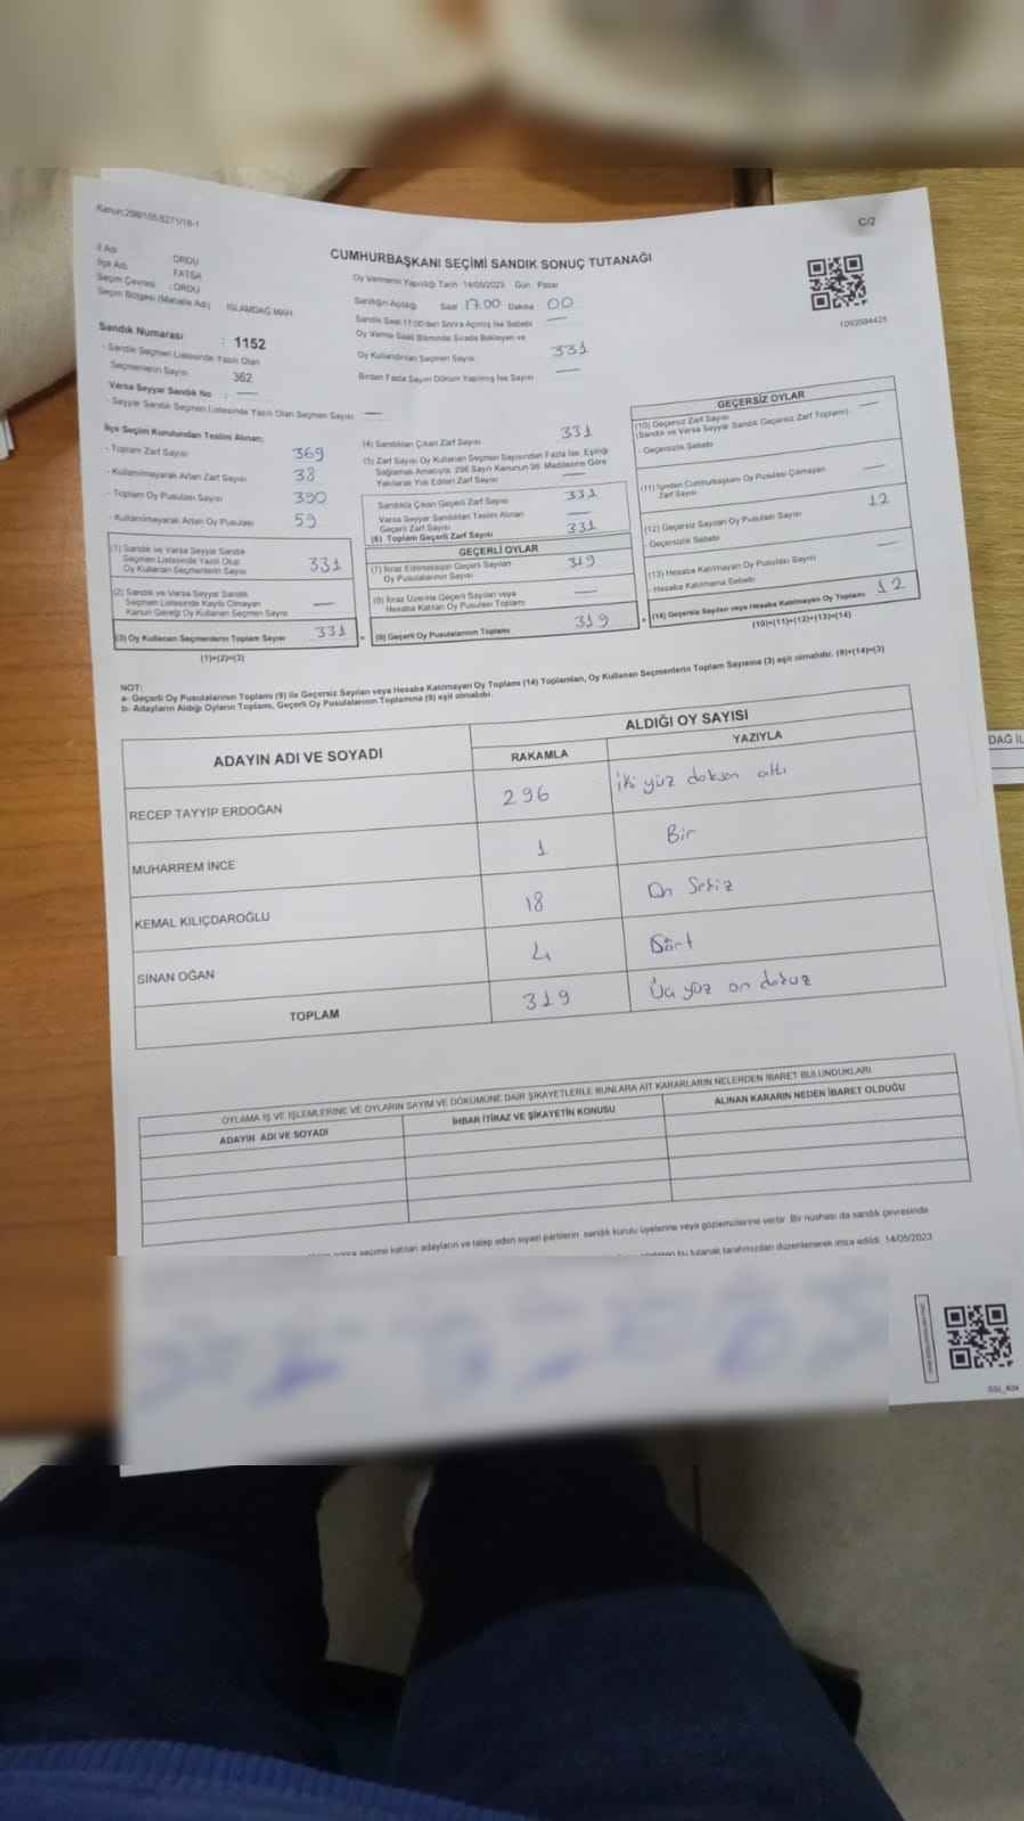 Kanun:298/105-6271/18-1
C/2
CUMHURBAŞKANI SEÇİMİ SANDIK SONUÇ TUTANAĞI
İl Adı : ORDU
İlçe Adı : FATSA
Seçim Çevresi : ORDU
Seçim Bölgesi (Mahalle Adı) : ISLAMDAG MAH
Oy Vermenin Yapıldığı Tarih 14/05/2023 Gün Pazar
Sandığın Açıldığı Saat 17.00 Dakika 00
Sandık Saat 17:00'den Sonra Açılmış İse Sebebi —
Oy Verme Saati Bitiminde Sırada Bekleyen ve
Oy Kullandırılan Seçmen Sayısı 331
Birden Fazla Sayım Döküm Yapılmış İse Sayısı —
1092694425
Sandık Numarası : 1152
- Sandık Seçmen Listesinde Yazılı Olan
Seçmenlerin Sayısı 362
Varsa Seyyar Sandık No : —
- Seyyar Sandık Seçmen Listesinde Yazılı Olan Seçmen Sayısı —
İlçe Seçim Kurulundan Teslim Alınan:
- Toplam Zarf Sayısı 369
- Kullanılmayarak Artan Zarf Sayısı 38
- Toplam Oy Pusulası Sayısı 390
- Kullanılmayarak Artan Oy Pusulası 59
(1) Sandık ve Varsa Seyyar Sandık
Seçmen Listesinde Yazılı Olup
Oy Kullanan Seçmenlerin Sayısı 331
(2) Sandık ve Varsa Seyyar Sandık
Seçmen Listesinde Kayıtlı Olmayan
Kanun Gereği Oy Kullanan Seçmen Sayısı —
(3) Oy Kullanan Seçmenlerin Toplam Sayısı 331
(1)+(2)=(3)
(4) Sandıktan Çıkan Zarf Sayısı 331
(5) Zarf Sayısı Oy Kullanan Seçmen Sayısından Fazla İse, Eşitliği
Sağlamak Amacıyla, 298 Sayılı Kanunun 98. Maddesine Göre
Yakılarak Yok Edilen Zarf Sayısı —
Sandıkta Çıkan Geçerli Zarf Sayısı 331
Varsa Seyyar Sandıktan Teslim Alınan
Geçerli Zarf Sayısı —
(6) Toplam Geçerli Zarf Sayısı 331
GEÇERLİ OYLAR
(7) İtiraz Edilmeksizin Geçerli Sayılan
Oy Pusulalarının Sayısı 319
(8) İtiraz Üzerine Geçerli Sayılan veya
Hesaba Katılan Oy Pusulası Toplamı —
(9) Geçerli Oy Pusulalarının Toplamı 319
GEÇERSİZ OYLAR
(10) Geçersiz Zarf Sayısı —
(Sandık ve Varsa Seyyar Sandık Geçersiz Zarf Toplamı)
- Geçersizlik Sebebi
(11) İçinden Cumhurbaşkanı Oy Pusulası Çıkmayan
Zarf Sayısı —
(12) Geçersiz Sayılan Oy Pusulası Sayısı 12
- Geçersizlik Sebebi
(13) Hesaba Katılmayan Oy Pusulası Sayısı —
- Hesaba Katılmama Sebebi
(14) Geçersiz Sayılan veya Hesaba Katılmayan Oy Toplamı 12
(10)+(11)+(12)+(13)=(14)
NOT:
a- Geçerli Oy Pusulalarının Toplamı (9) ile Geçersiz Sayılan veya Hesaba Katılmayan Oy Toplamı (14) Toplamları, Oy Kullanan Seçmenlerin Toplam Sayısına (3) eşit olmalıdır. (9)+(14)=(3)
b- Adayların Aldığı Oyların Toplamı, Geçerli Oy Pusulalarının Toplamına (9) eşit olmalıdır.
ADAYIN ADI VE SOYADI
ALDIĞI OY SAYISI
RAKAMLA YAZIYLA
RECEP TAYYİP ERDOĞAN 296 İki yüz doksan altı
MUHARREM İNCE 1 Bir
KEMAL KILIÇDAROĞLU 18 On Sekiz
SİNAN OĞAN 4 Dört
TOPLAM 319 Üç yüz on dokuz
OYLAMA İŞ VE İŞLEMLERİNE VE OYLARIN SAYIM VE DÖKÜMÜNE DAİR ŞİKAYETLERLE BUNLARA AİT KARARLARIN NELERDEN İBARET BULUNDUKLARI
ADAYIN ADI VE SOYADI İHBAR İTİRAZ VE ŞİKAYETİN KONUSU ALINAN KARARIN NEDEN İBARET OLDUĞU
seçime katılan adayların ve talep eden siyasi partilerin sandık kurulu üyelerine veya gözlemcilerine verilir. Bir nüshası da sandık çevresinde
bu tutanak tarafımızdan düzenlenerek imza edildi. 14/05/2023
DAĞ İL